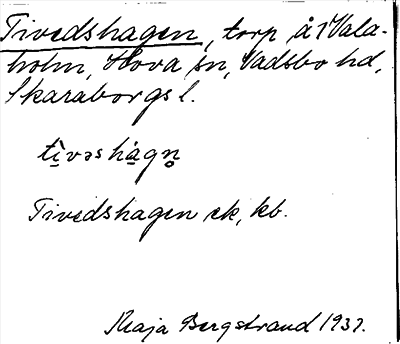 Tivedshagen, torp å 1 Vala-
holm, Hova sn, Vadsbo hd,
Skaraborgs l.
tìvəshàgn̥
Tivedshagen ek, kb.
Maja Bergstrand 1937.